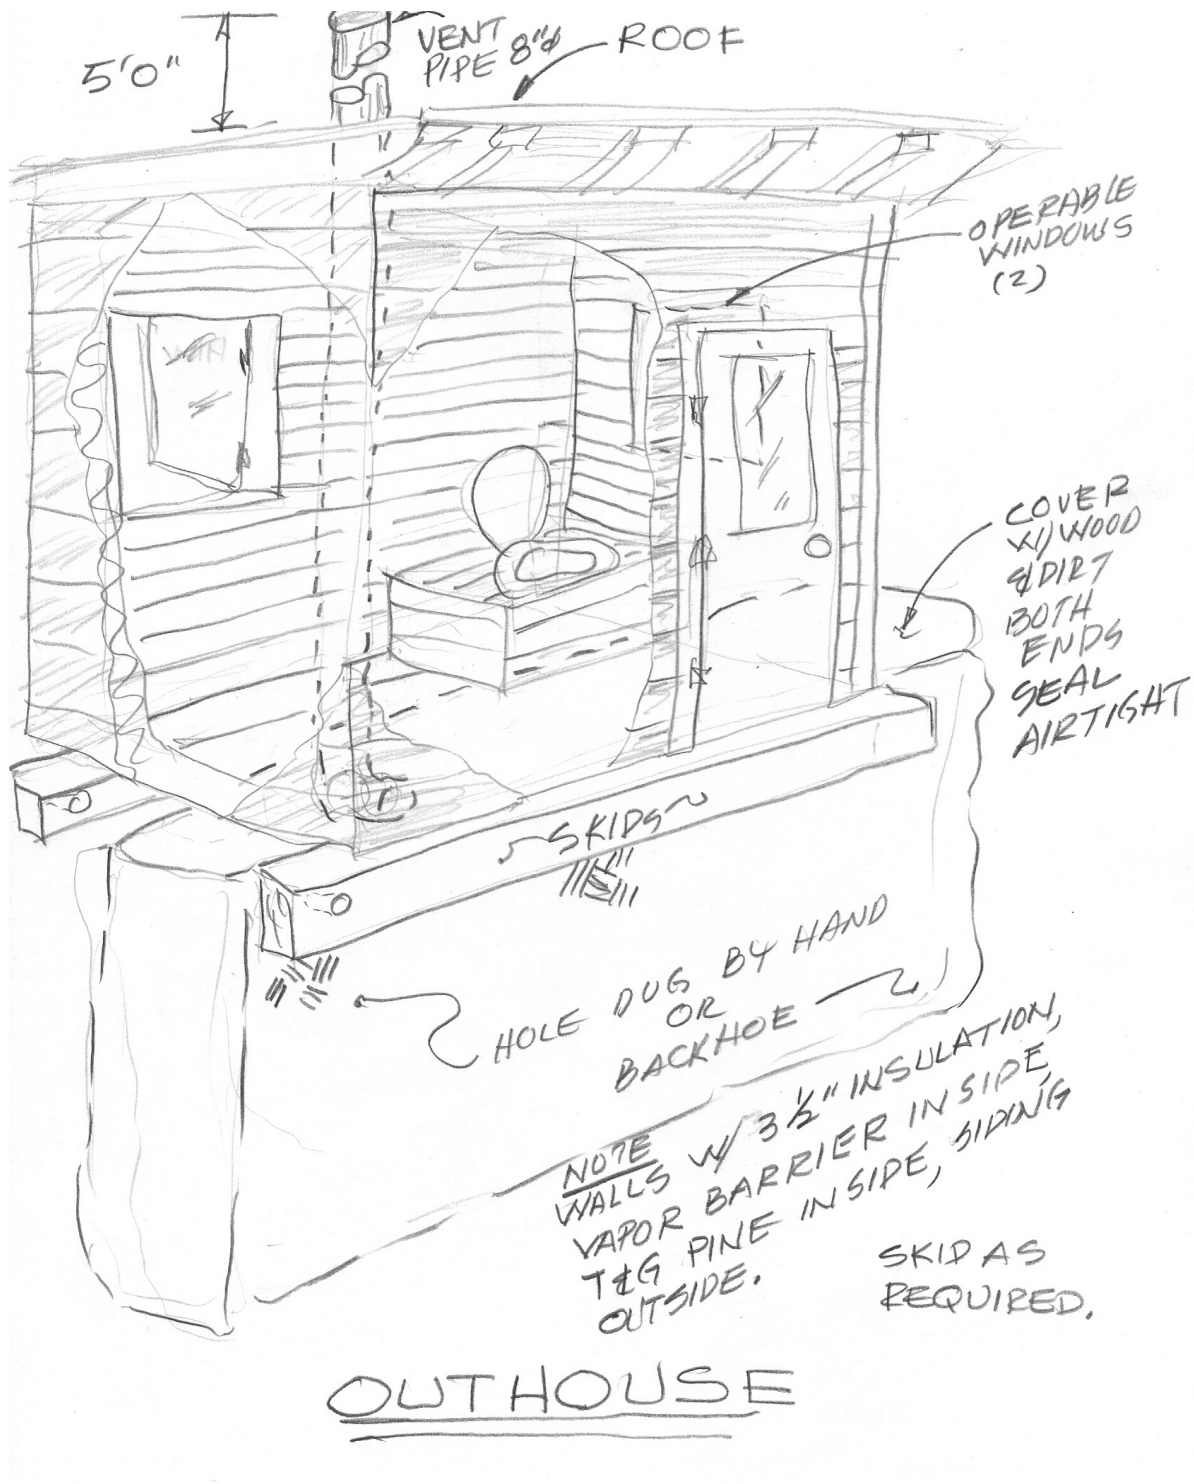 5'0"
VENT
PIPE 8"ϕ
ROOF
OPERABLE
WINDOWS
(2)
WIN
COVER
W/ WOOD
& DIRT
BOTH
ENDS
SEAL
AIRTIGHT
SKIDS
HOLE DUG BY HAND
OR
BACKHOE
NOTE
WALLS W/ 3½" INSULATION,
VAPOR BARRIER INSIDE,
T&G PINE INSIDE, SIDING
OUTSIDE.
SKID AS
REQUIRED.
OUTHOUSE